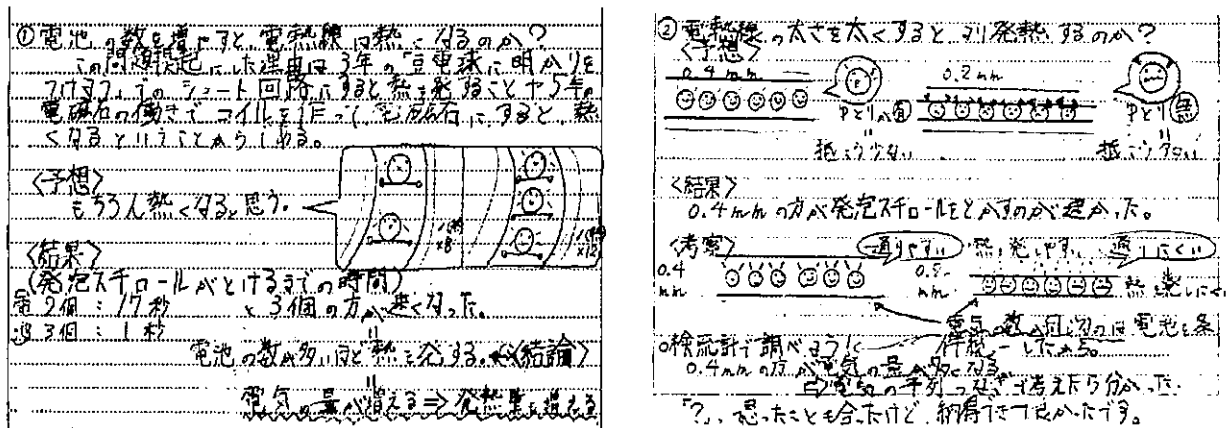 ①電池の数を増やすと、電熱線は熱くなるのか？
この問題提起にした理由は3年の豆電球に明かりを
つけよう、での ショート回路にすると熱を発することや5年の
電磁石の働きで コイルを作って、電磁石にすると、熱
くなるということからしめる。
〈予想〉
もちろん熱くなると思う。
〈結果〉
(発泡スチロールがとけるまでの時間)
電2個：17秒 と3個の方が速くなった。
池3個：1秒
電池の数が多いほど熱を発する。〈結論〉
電気の量が増える⇒発熱量も増える
②電熱線の太さを太くすると、より発熱するのか？
〈予想〉
0.4mm 0.2mm
ゆとりが有 ゆとり無
抵こう少ない 抵こう少ない
〈結果〉
0.4mmの方が発泡スチロールをとかすのが速かった。
〈考察〉 通りやすい 熱を発しやすい 通りにくい
0.4
mm
0.2
mm 熱を発しにくい
電気の数が同じなのは電池を条
件統一したから。
○検流計で調べるうしく
0.4mmの方が電気の量が多くなる
⇨電気の平列つなぎで考えたら分かった。
「？」、思ったことも合ったけど、納得できて良かったです。